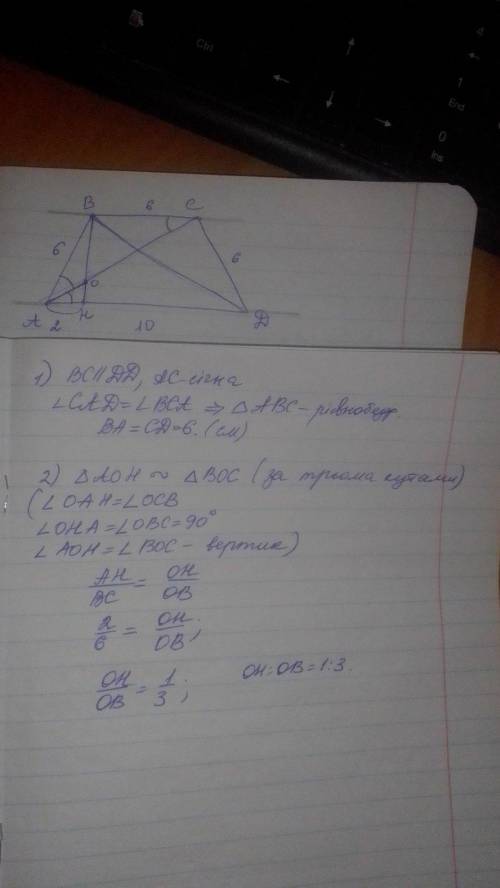 Ctrl
4
1
End
0
Ins
B 6 C
6 6
O
A 2 H 10 D
1) BC∥DD, AC-січна
∠CAD=∠BCA ⇒ △ABC-рівнобедр.
BA=CD=6. (см)
2) △AOH ∼ △BOC (за трьома кутами)
(∠OAH=∠OCB
∠OHA=∠OBC=90°
∠AOH=∠BOC- вертик)
AH/BC = OH/OB
2/6 = OH/OB;
OH/OB = 1/3; OH:OB=1:3.